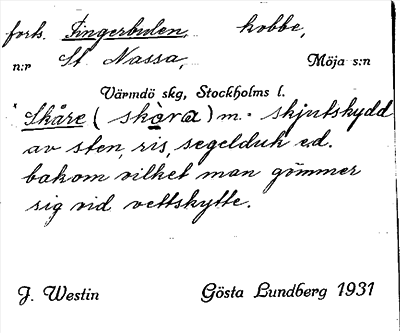 forts. Fingerbulen, kobbe,
n:r St Nassa, Möja s:n
Värmdö skg, Stockholms l.
x Skåre (skåra) m. skjutskydd
av sten, ris, segelduk e.d.
bakom vilket man gömmer
sig vid vettskytte.
J. Westin Gösta Lundberg 1931